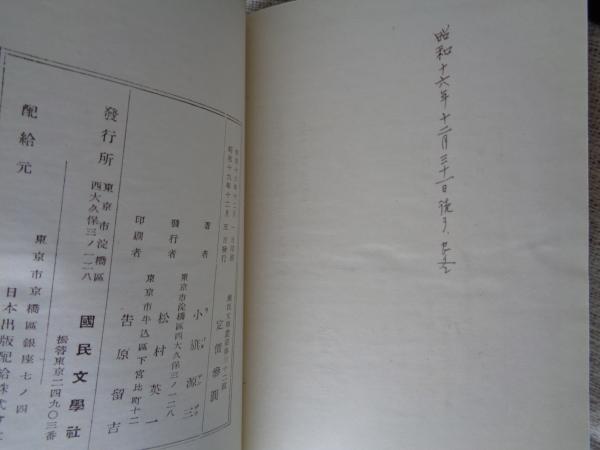 昭和十六年十二月三十一日後
昭和十六年十二月一日印刷
昭和十六年十二月五日發行
定價參圓
著者
小旗源三
東京市淀橋區西大久保三ノ一二八
發行者
松村英一
東京市牛込區下宮比町十二
印刷者
吉原留吉
發行所
東京市淀橋區
西大久保三ノ一二八
國民文學社
振替東京二四九〇三番
配給元
東京市京橋區銀座七ノ四
日本出版配給株式會社